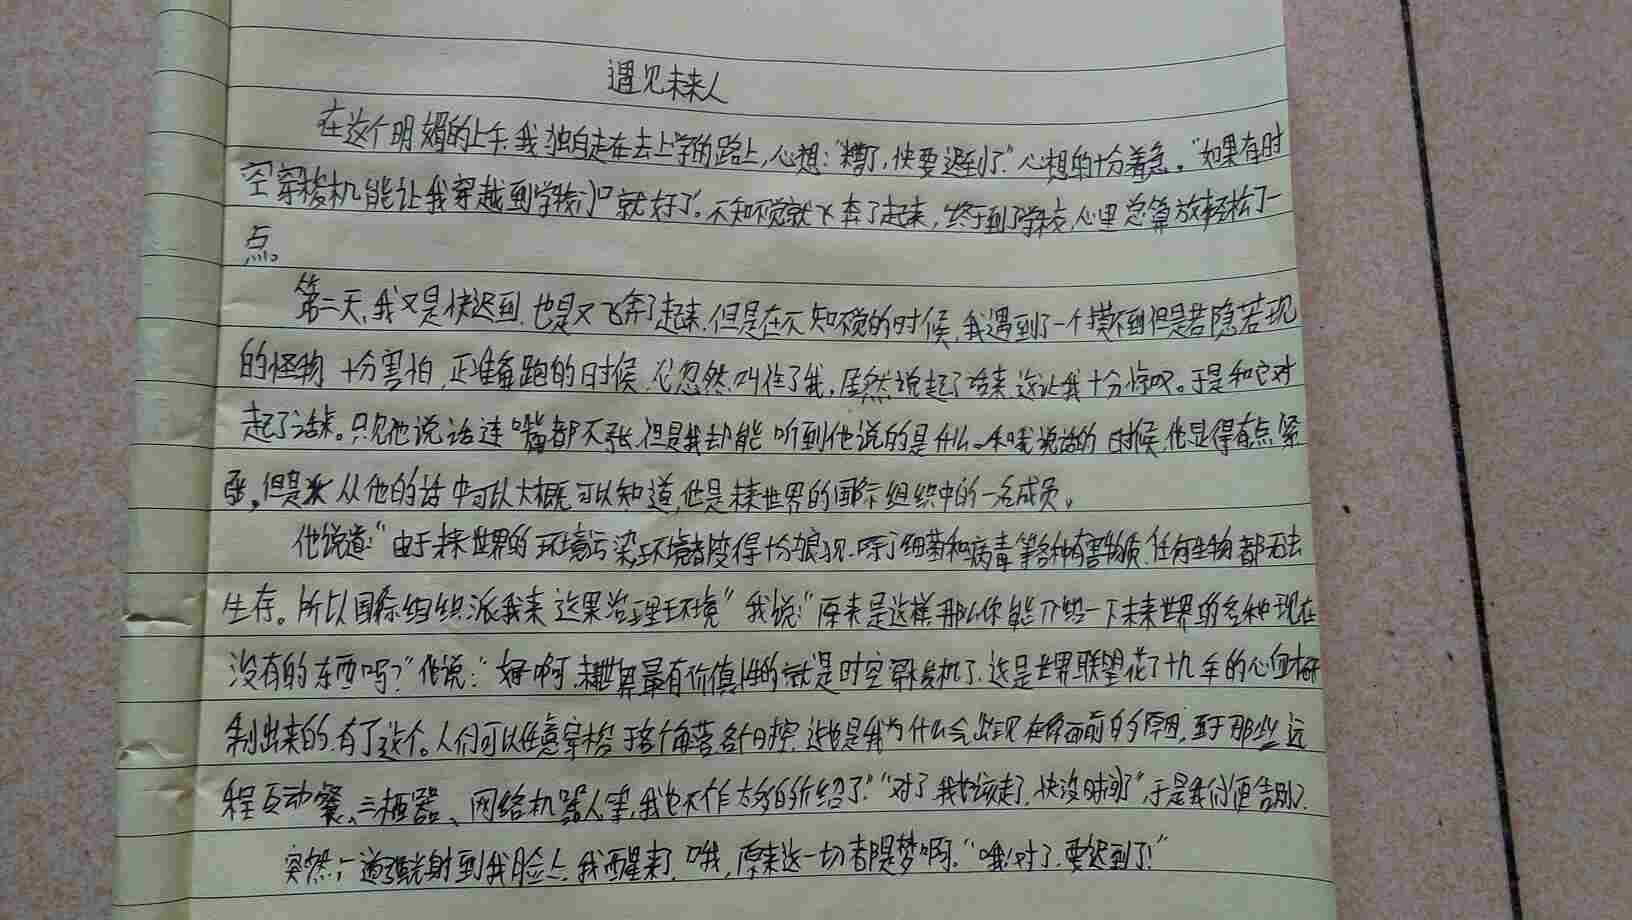 遇见未来人
在这个明媚的上午,我独自走在去上学的路上,心想:"糟了,快要迟到了."心想的十分着急。"如果有时
空穿梭机能让我穿越到学校门口就好了"。不知不觉就飞奔了起来,终于到了学校,心里总算放轻松了一
点。
第二天,我又是快迟到,也是又飞奔了起来,但是在不知不觉的时候,我遇到了一个摸不到但是若隐若现
的怪物 十分害怕,正准备跑的时候,它忽然叫住了我,居然说起了话来,这让我十分惊叹。于是和它对
起了话来。只见他说话连嘴都不张,但是我却能听到他说的是什么。和我说话的时候,他显得有点紧
张。但是从他的话中可以大概可以知道,他是未来世界的国际组织中的一名成员。
他说道:"由于未来世界的环境污染,环境都变得十分狼狈.除了细菌和病毒等各种有害物质,任何生物都无法
生存。所以国际组织派我来这里治理环境"我说:"原来是这样,那么你能介绍一下未来世界的各种现在
没有的东西吗?"他说:"好啊,未来世界最有价值性的就是时空穿梭机了,这是世界联盟花了十九年的心血研
制出来的,有了这个。人们可以任意穿梭于各个时空,这也是我为什么会出现在你面前的原因,至于那些远
程互动餐、三栖器、网络机器人等,我也不作太多的介绍了""对了,我也该走了,快没时间了"于是我们便告别了.
突然,一道强光射到我脸上,我醒来了,"哦,原来这一切都是梦啊,""哦!对了,要迟到了!"